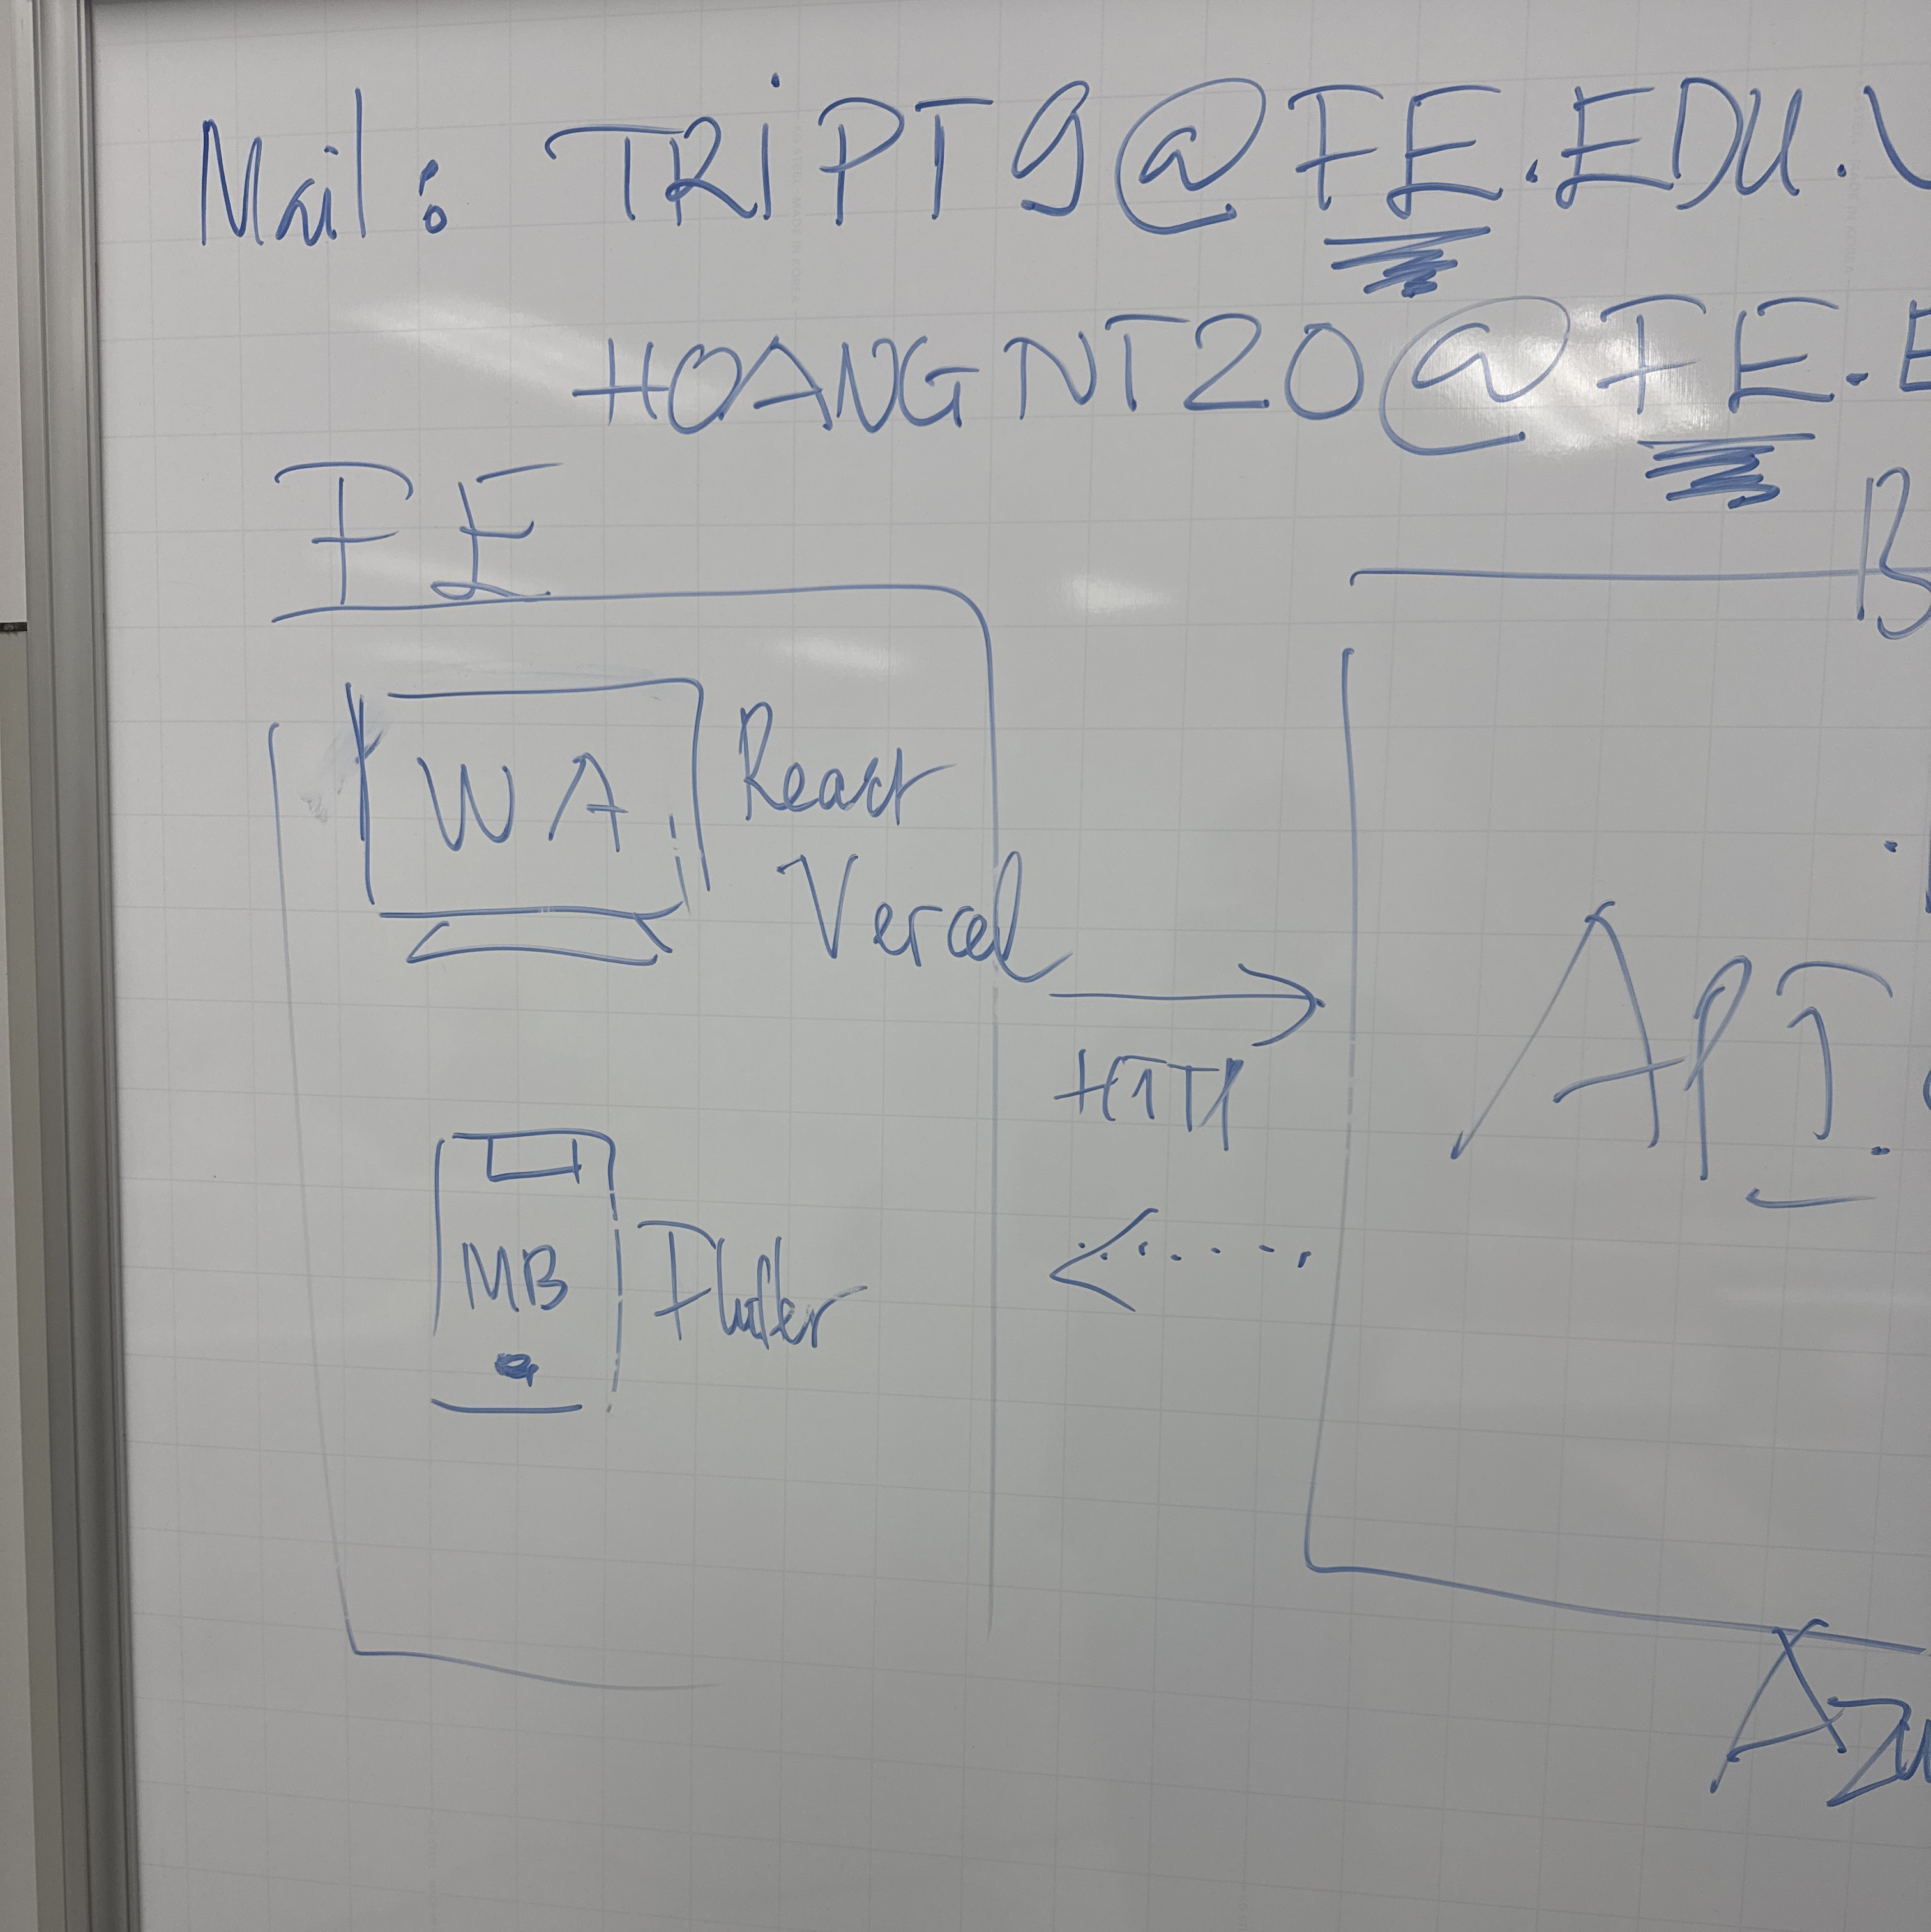 Mail: TRiPT9@FE.EDU.V
HOANGNT20@FE.E
FE
B
WA
React
Vercel
HTTP
API
MB
Flutter
Azu